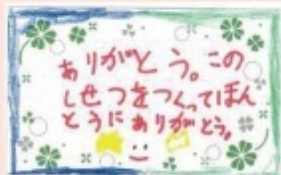 ありがとう。この
しせつをつくってほん
とうにありがとう。